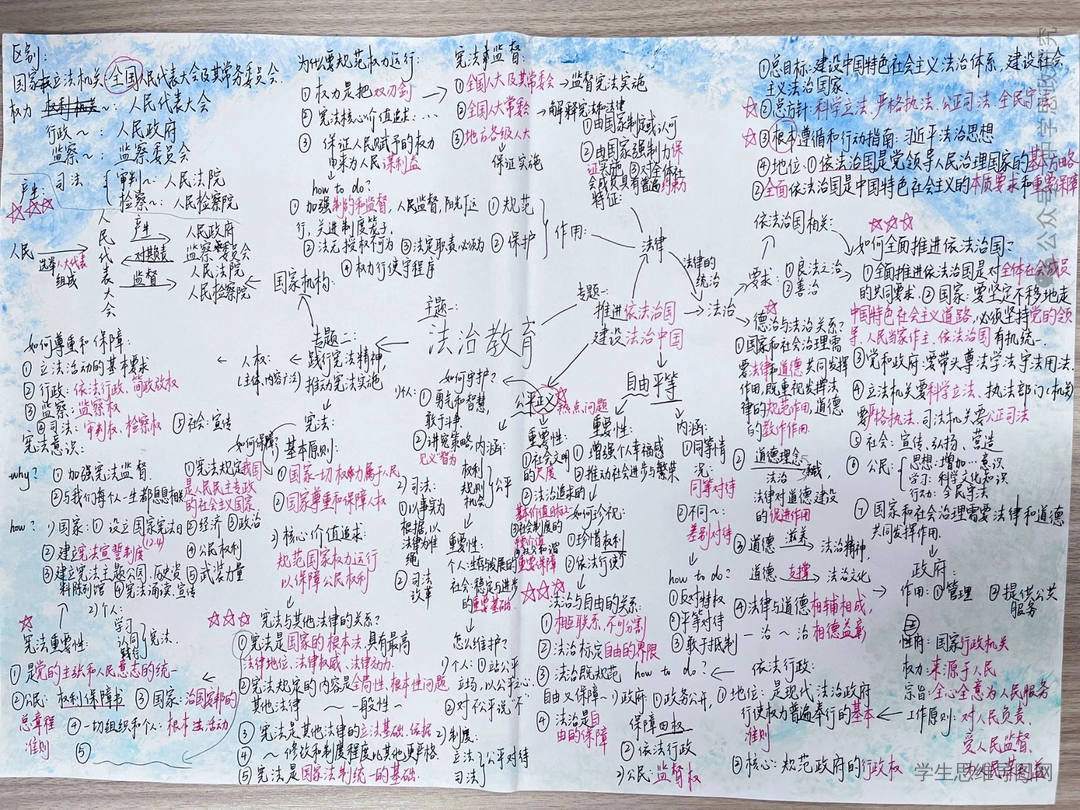 区别:
国家立法机关:全国人民代表大会及其常务委员会.
权力 ~:人民代表大会
行政~:人民政府
监察~:监察委员会
产生:
司法 审判~:人民法院
检察~:人民检察院
人民
选举人大代表
组成
人民代表大会
产生
对其负责
监督
人民政府
监察委员会
人民法院
人民检察院
国家机构:
为什么要规范权力运行:
① 权力是把双刃剑
② 宪法核心价值追求:...
③ 保证人民赋予的权力
由来为人民谋利益
how to do?
② 法无授权不可为 ③ 法定职责必须为
④ 权力行使守程序
宪法监督:
① 全国人大及其常委会→监督宪法实施
② 全国人大常委会→解释宪法和法律
③ 地方各级人大
保证实施
①由国家制定或认可
②由国家强制力保
证实施 ③对全体社
会成员具有普遍约束力
特征:
作用:
① 规范
② 保护
法律
法律的
统治
法治
要求:
①良法之治
②善治
①总目标:建设中国特色社会主义法治体系,建设社会
主义法治国家.
②总方针:科学立法、严格执法、公正司法、全民守法
③根本遵循和行动指南:习近平法治思想
④地位:①依法治国是党领导人民治理国家的基本方略
②全面依法治国是中国特色社会主义的本质要求和重要保障
依法治国相关:
如何全面推进依法治国?
①全面推进依法治国是对全体社会成员
的共同要求.②国家:要坚定不移地走
中国特色社会主义道路,必须坚持党的领
导、人民当家作主、依法治国有机统一.
③党和政府:要带头尊法学法守法用法.
④立法机关要科学立法、执法部门(机关)
要严格执法、司法机关要公正司法
⑤社会:宣传、弘扬、营造
⑥公民: 思想:增加...意识
学习:科学文化知识
⑦国家和社会治理需要法律和道德
共同发挥作用.
德治与法治关系?
①国家和社会治理需
要法律和道德共同发挥
作用,既重视发挥法
律的规范作用,道德
的教化作用.
② 道德理念
法律对道德建设
的促进作用
③ 道德 滋养→ 法治精神.
道德 支撑→ 法治文化
④ 法律与道德相辅相成,
法治~治 相得益彰
主题一:
法治教育
专题一:
推进依法治国
建设法治中国
专题二:
践行宪法精神,
推动宪法实施
人权:
(主体,内容广泛)
如何尊重和保障:
① 立法活动的基本要求
② 行政:依法行政、简政放权
③ 监察:监察权
④ 司法:审判权、检察权 ⑤社会:宣传
宪法:
如何保障?
基本原则:
①国家一切权力属于人民
②国家尊重和保障人权
①宪法规定我国
是人民民主专政
的社会主义国家.
②经济 ③政治
④公民权利
⑤武装力量
核心价值追求:
规范国家权力运行
以保障公民权利
宪法意识:
why? ①加强宪法监督
②与我们每个人一生都息息相关
how? 1)国家:①设立国家宪法日
②建立宪法宣誓制度(12.4)
③建立宪法主题公园、历史资
料陈列馆 ④宪法诵读、宣传
2)个人: 学习 认同 践行 宪法.
宪法重要性:
①是党的主张和人民意志的统一
②公民:权利保障书 ③国家:治国安邦的
总章程
④一切组织和个人:根本活动
准则
⑤
宪法与其他法律的关系?
①宪法是国家的根本法,具有最高
法律地位、法律权威、法律效力.
②宪法规定的内容是全局性、根本性问题
其他法律 ~ 一般性~
③ 宪法是其他法律的立法基础、依据
④ ~修改和制度程度比其他更严格.
⑤ 宪法是国家法制统一的基础.
公平正义
热点问题
如何守护?
1)个人:①勇气和智慧,
敢于斗争
②讲究策略
见义"智"为
2)司法:
①以事实为
根据,以
法律为准
绳
②司法
改革
内涵:
权利
规则
机会
公平
重要性:
个人:生存发展的~
社会:稳定与进步
的重要基础
怎么维护?
1)个人:①站公平
立场,以公平之心
②对不公平说"不"
2)制度:
立法
司法
公平对待
重要性:
①社会文明
的尺度
②法治追求的
基本价值标之一
③社会制度的
重要保障
自由平等
重要性:
①增强个人幸福感
②推动社会进步与繁荣
如何珍视:
①珍惜权利
②依法行使
法治与自由的关系:
① 相互联系,不可分割
② 法治标定自由的界限
③ 法治既规范
自由又保障~
④ 法治是自
由的保障
内涵:
①同等情
况:
同等对待
②不同~
差别对待
how to do?
①反对特权
②平等对待
③敢于抵制
how to do?
1)政府:①政务公开,
保障四权
②依法行政
2)公民:监督权
依法行政:
①地位:是现代法治政府
行使权力普遍奉行的基本
准则
②核心:规范政府的行政权
政府:
作用:①管理 ②提供公共
服务
性质:国家行政机关
权力:来源于人民
宗旨:全心全意为人民服务
工作原则:对人民负责.
受人民监督.
学生思维导图网